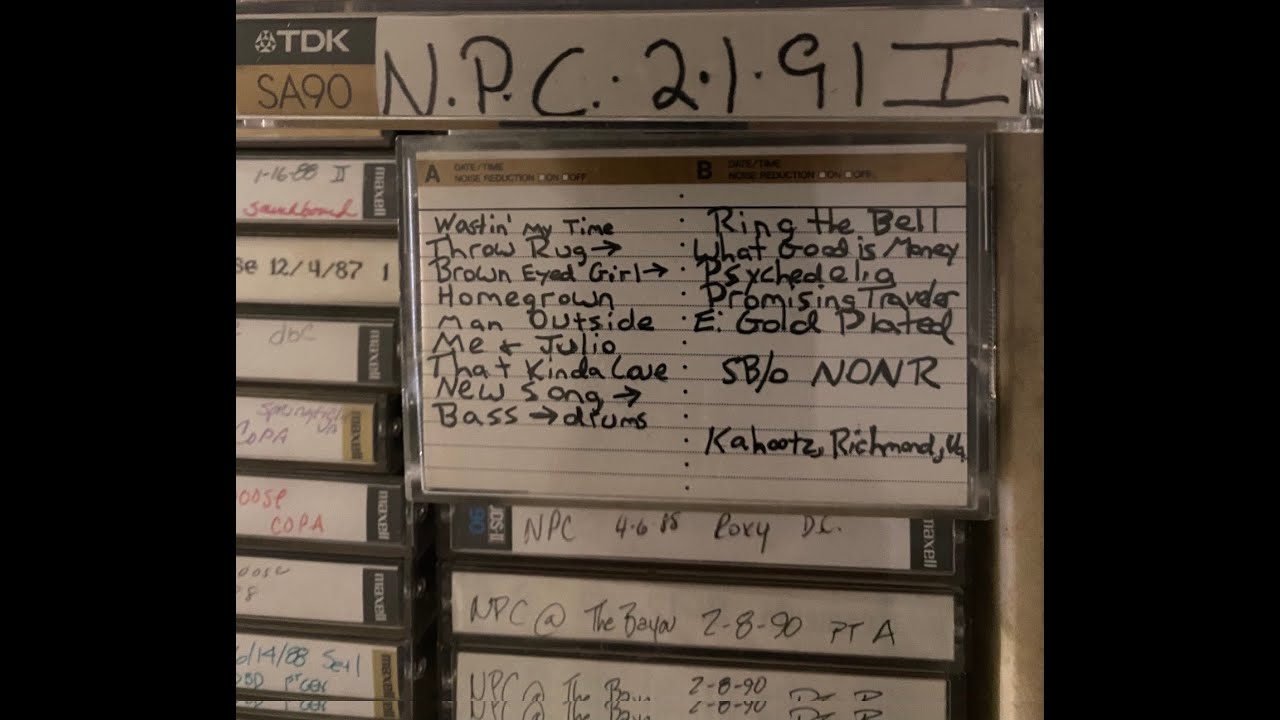 TDK
SA90
N.P.C. 2.1.91 I
1-16-88 II
Soundboard
maxell
12/4/87 1
dbC
maxell
Springfield
VA
COPA
maxell
COPA
maxell
maxell
6/14/88 Set 1
A DATE/TIME
NOISE REDUCTION □ON □OFF
Wastin' My Time
Throw Rug →
Brown Eyed Girl →
Homegrown
Man Outside
Me + Julio
That Kinda Love
New Song →
Bass → drums
B DATE/TIME
NOISE REDUCTION □ON □OFF
Ring the Bell
What Good is Money
Psychedelia
Promising Traveler
E: Gold Plated
SB/o NONR
Kahootz, Richmond, Va
90
NPC 4.6.88 Roxy D.C.
maxell
NPC @ The Bayou 2-8-90 PT A
NPC @ The Bayou 2-8-90
NPC @ The Bayou 2-8-90